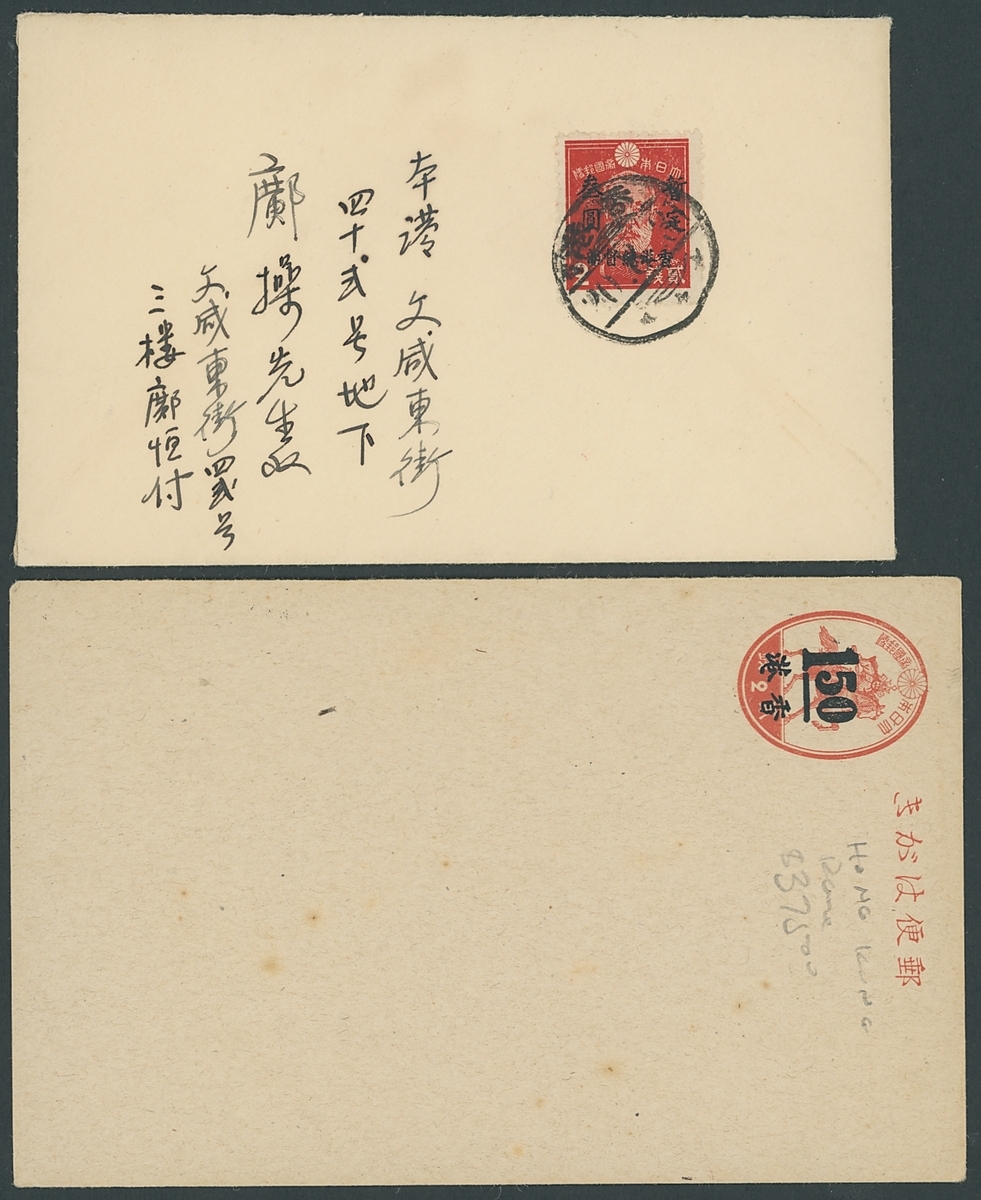 本港 文咸東街
四十弍号地下
鄺操先生收
文咸東街四弍号
三楼鄺恒付
大日本帝國郵便
暫定
叁圓
香港總督部
貳銭
大日本帝國郵便
2
150
香港
郵便はがき
HONG KONG